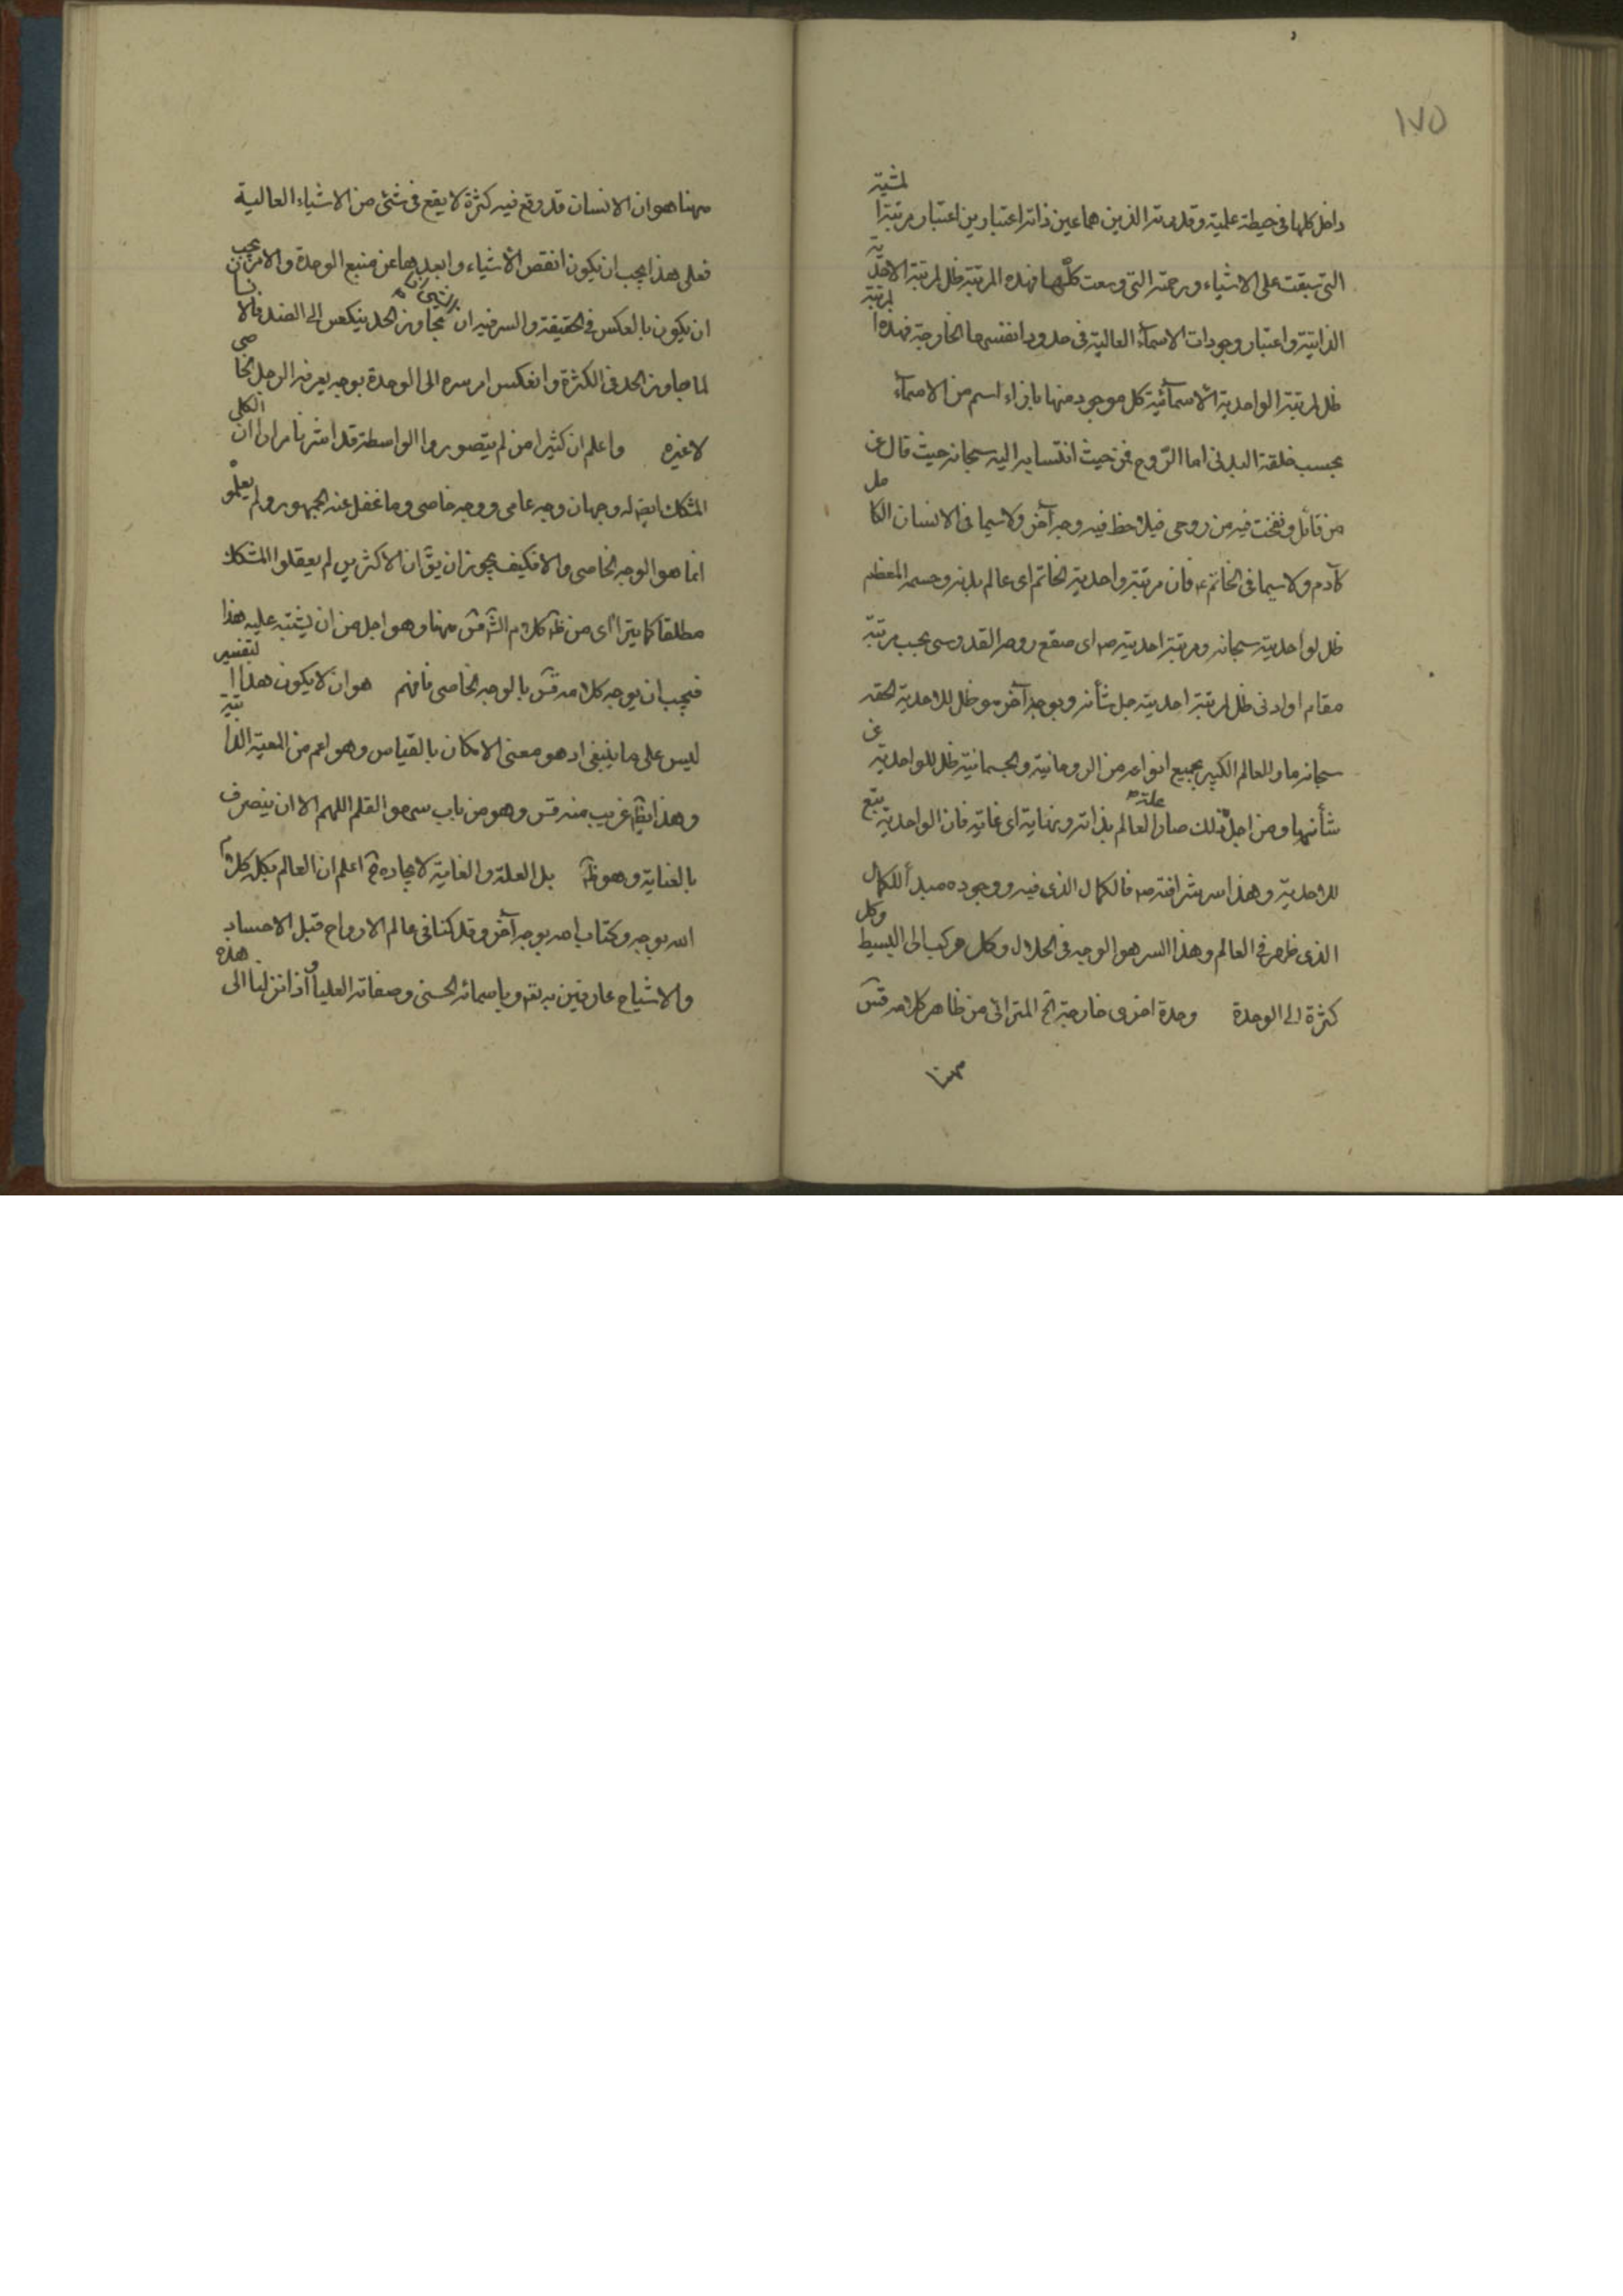 ١٧٥
داخل كلها فى حيطة علمية وقدرته الذين هما عين ذاته اعتبارين اعتبار مرتبة المشية
التى سبقت على الاشياء ورحمته التى وسعت كلها فهذه المرتبة ظل لمرتبة الاحدية
الذاتية واعتبار وجودات الاسمآء العالية فى حدود انفسها الخارجة فهذه المرتبة
ظل لمرتبة الواحدية الاسمآئية كل موجود منها بازاء اسم من الاسمآء
بحسب خلقة البدنى اما الروح فمن حيث انتسابه اليه سبحانه حيث قال عن
من قائل ونفخت فيه من روحى فيلاحظ فيه وجه آخر ولا سيما فى الانسان الكامل
كآدم ولا سيما فى الخاتم ع فان مرتبة واحدية الخاتم اى عالم بدنه وجسمه المعظم
ظل لواحديته سبحانه ومرتبة احديته ص اى صقع روحه القدوسى بحسب مرتبة
مقام او ادنى ظل لمرتبة احديته جل شأنه وبوجه آخر هو ظل للاحدية الحقه
سبحانه والعالم الكبير بجميع انواعه من الروحانية والجسمانية ظل للواحدية عن
شأنها ومن اجل ذلك صار علة العالم بذاته ونهاية اى غاية فان الواحدية تبع
للاحدية وهذا سر شرافته ص فالكمال الذى فيه ووجوده مبدأ للكمال
الذى ظهر فى العالم وهذا السر هو الوجه فى انحلال وكل مركب الى البسيط وكل
كثرة الى الوحدة وحدة اخرى خارجة الخ المترائى من ظاهر كلامه قس
مهنا
مهنا هو ان الانسان قد وقع فيه كثرة لا يقع فى شئ من الاشياء العالية
فعلى هذا يجب ان يكون انقص الاشياء وابعدها عن منبع الوحدة والامر يجب
ان يكون بالعكس فى الحقيقة والسر فيه ان الشئ اذا تجاوز الحد ينعكس الى الضد فالانسان
لما جاوز الحد فى الكثرة وانعكس امر سره الى الوحدة بوجه يعرفه الرجل الخاصى
لا غيره واعلم ان كثيرا من لم يتصوروا الواسطة قد اشرنا مرارا ان الكلى
المشكك ايض له وجهان وجه عامى ووجه خاصى وما غفل عنه الجمهور ولم يعلموه
انما هو الوجه الخاصى والا فكيف يجوز ان يق ان الاكثرين لم يعقلوا المشكك
مطلقا كما يترا آى من ظ كلام الش قس مهنا وهو اجل من ان يشتبه عليه هذا
فيجب ان يوجه كلامه قس بالوجه الخاصى فافهم هو ان لا يكون هذا التفسير
ليس على ما ينبغى اذ هو معنى الامكان بالقياس وهو اعم من المعية الذاتية
وهذا ايض غريب منه قس وهو من باب سهو القلم اللهم الا ان ينصرف
بالعناية وهو ظ بل العلة والغاية لايجاده ع اعلم ان العالم بكله كلام
الله بوجه وكتاب الله بوجه آخر وقد كنا فى عالم الارواح قبل الاجساد
والاشباح عارفين به تع وباسمائه الحسنى وصفاته العليا واذا نزلنا الى هذه